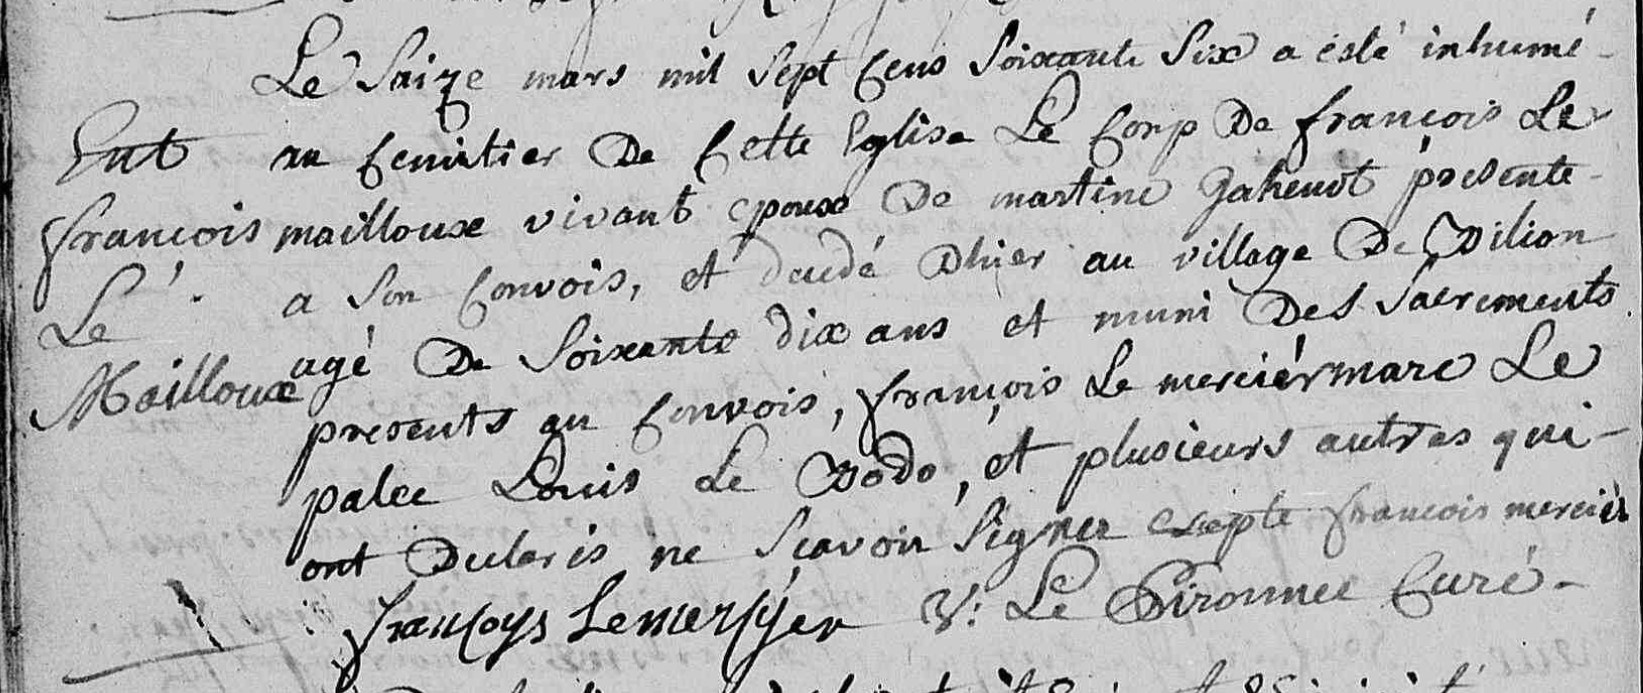 Le Saize mars mil Sept Cens Soixante Six a esté inhumé
Ent
au Cemitier De Cette Eglise Le Corp De françois Le
françois
mailloux vivant epoux De martine Gahenot presente
Le
a Son Convois, et decedé Dhier au village De Dilion
Mailloux
agé De Soixante dix ans et muni Des Sacrements
presents au Convois, françois Le mercier marc Le
palec Louis Le Bodo, et plusieurs autres qui
ont Declaris ne Scavoir Signer exepte francois mercier
francoys Lemercyer V: Le Pironnec Curé